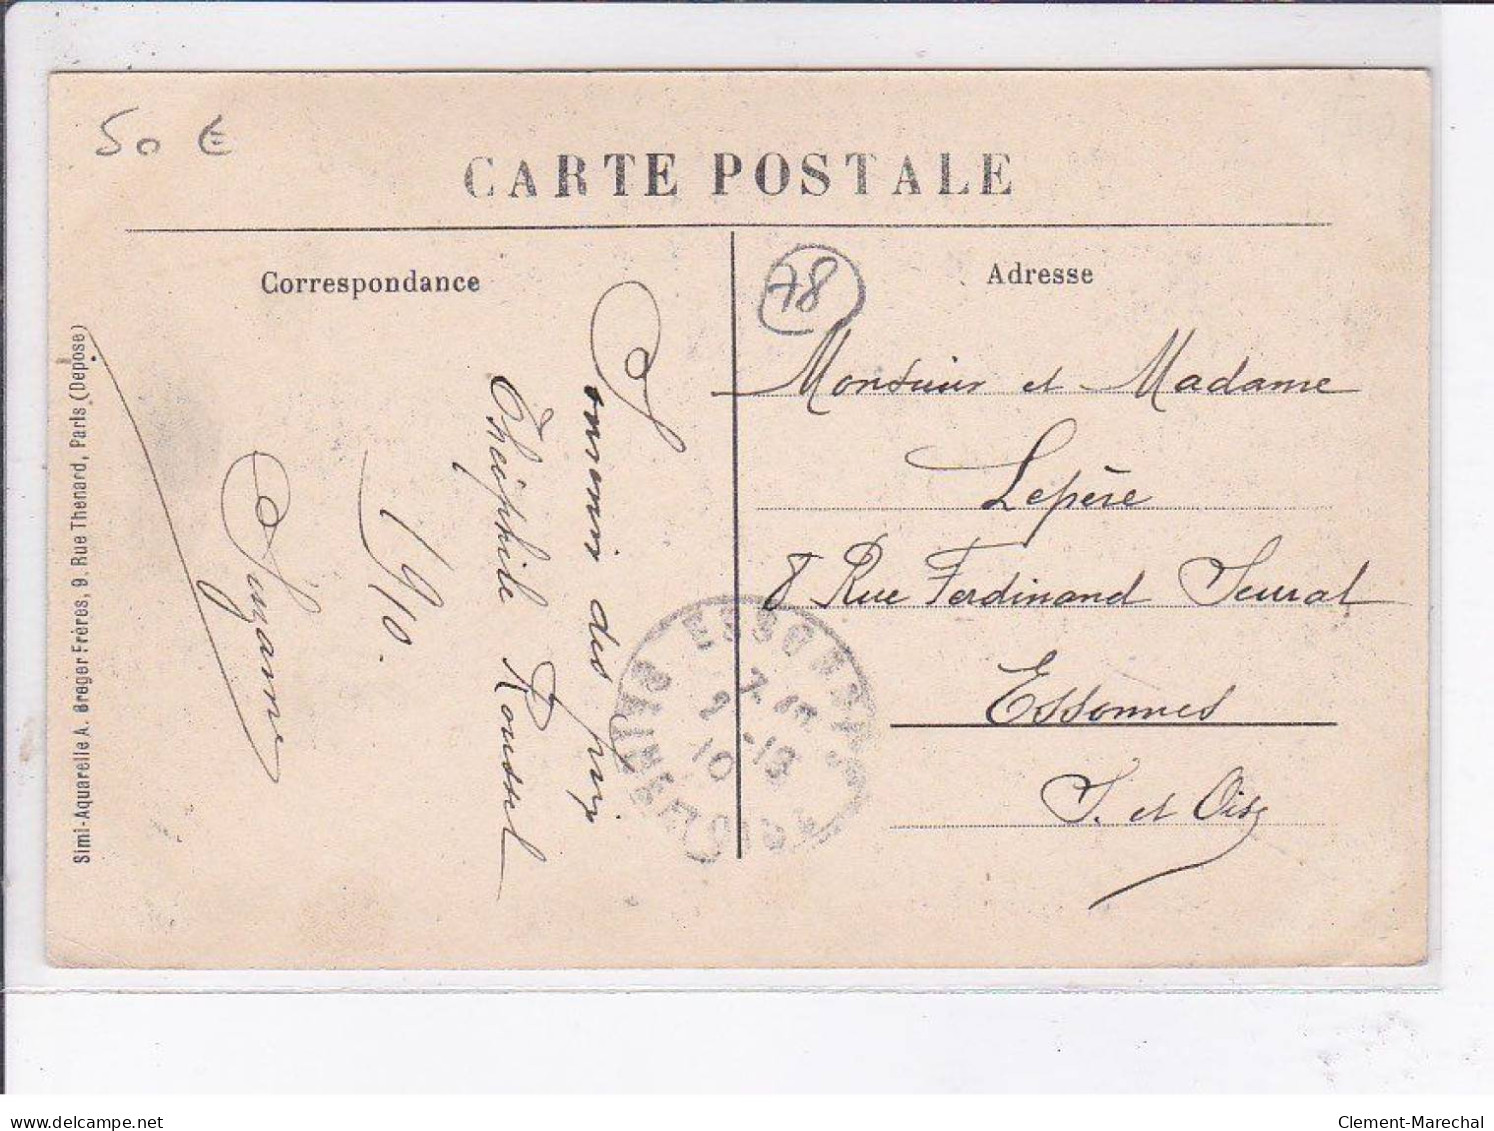 50 €
CARTE POSTALE
Correspondance
Adresse
78
Souvenir des prix
Théophile Roussel
1910.
Suzanne
Monsieur et Madame
Lepère
8 Rue Ferdinand Seurat
Essonnes
S. et Oise
ESSONNES
7-10
2 -13
10
SEINE-ET-OISE
Simi-Aquarelle A. Breger Frères, 9, Rue Thenard, Paris (Déposé)
www.delcampe.net
Clement-Marechal